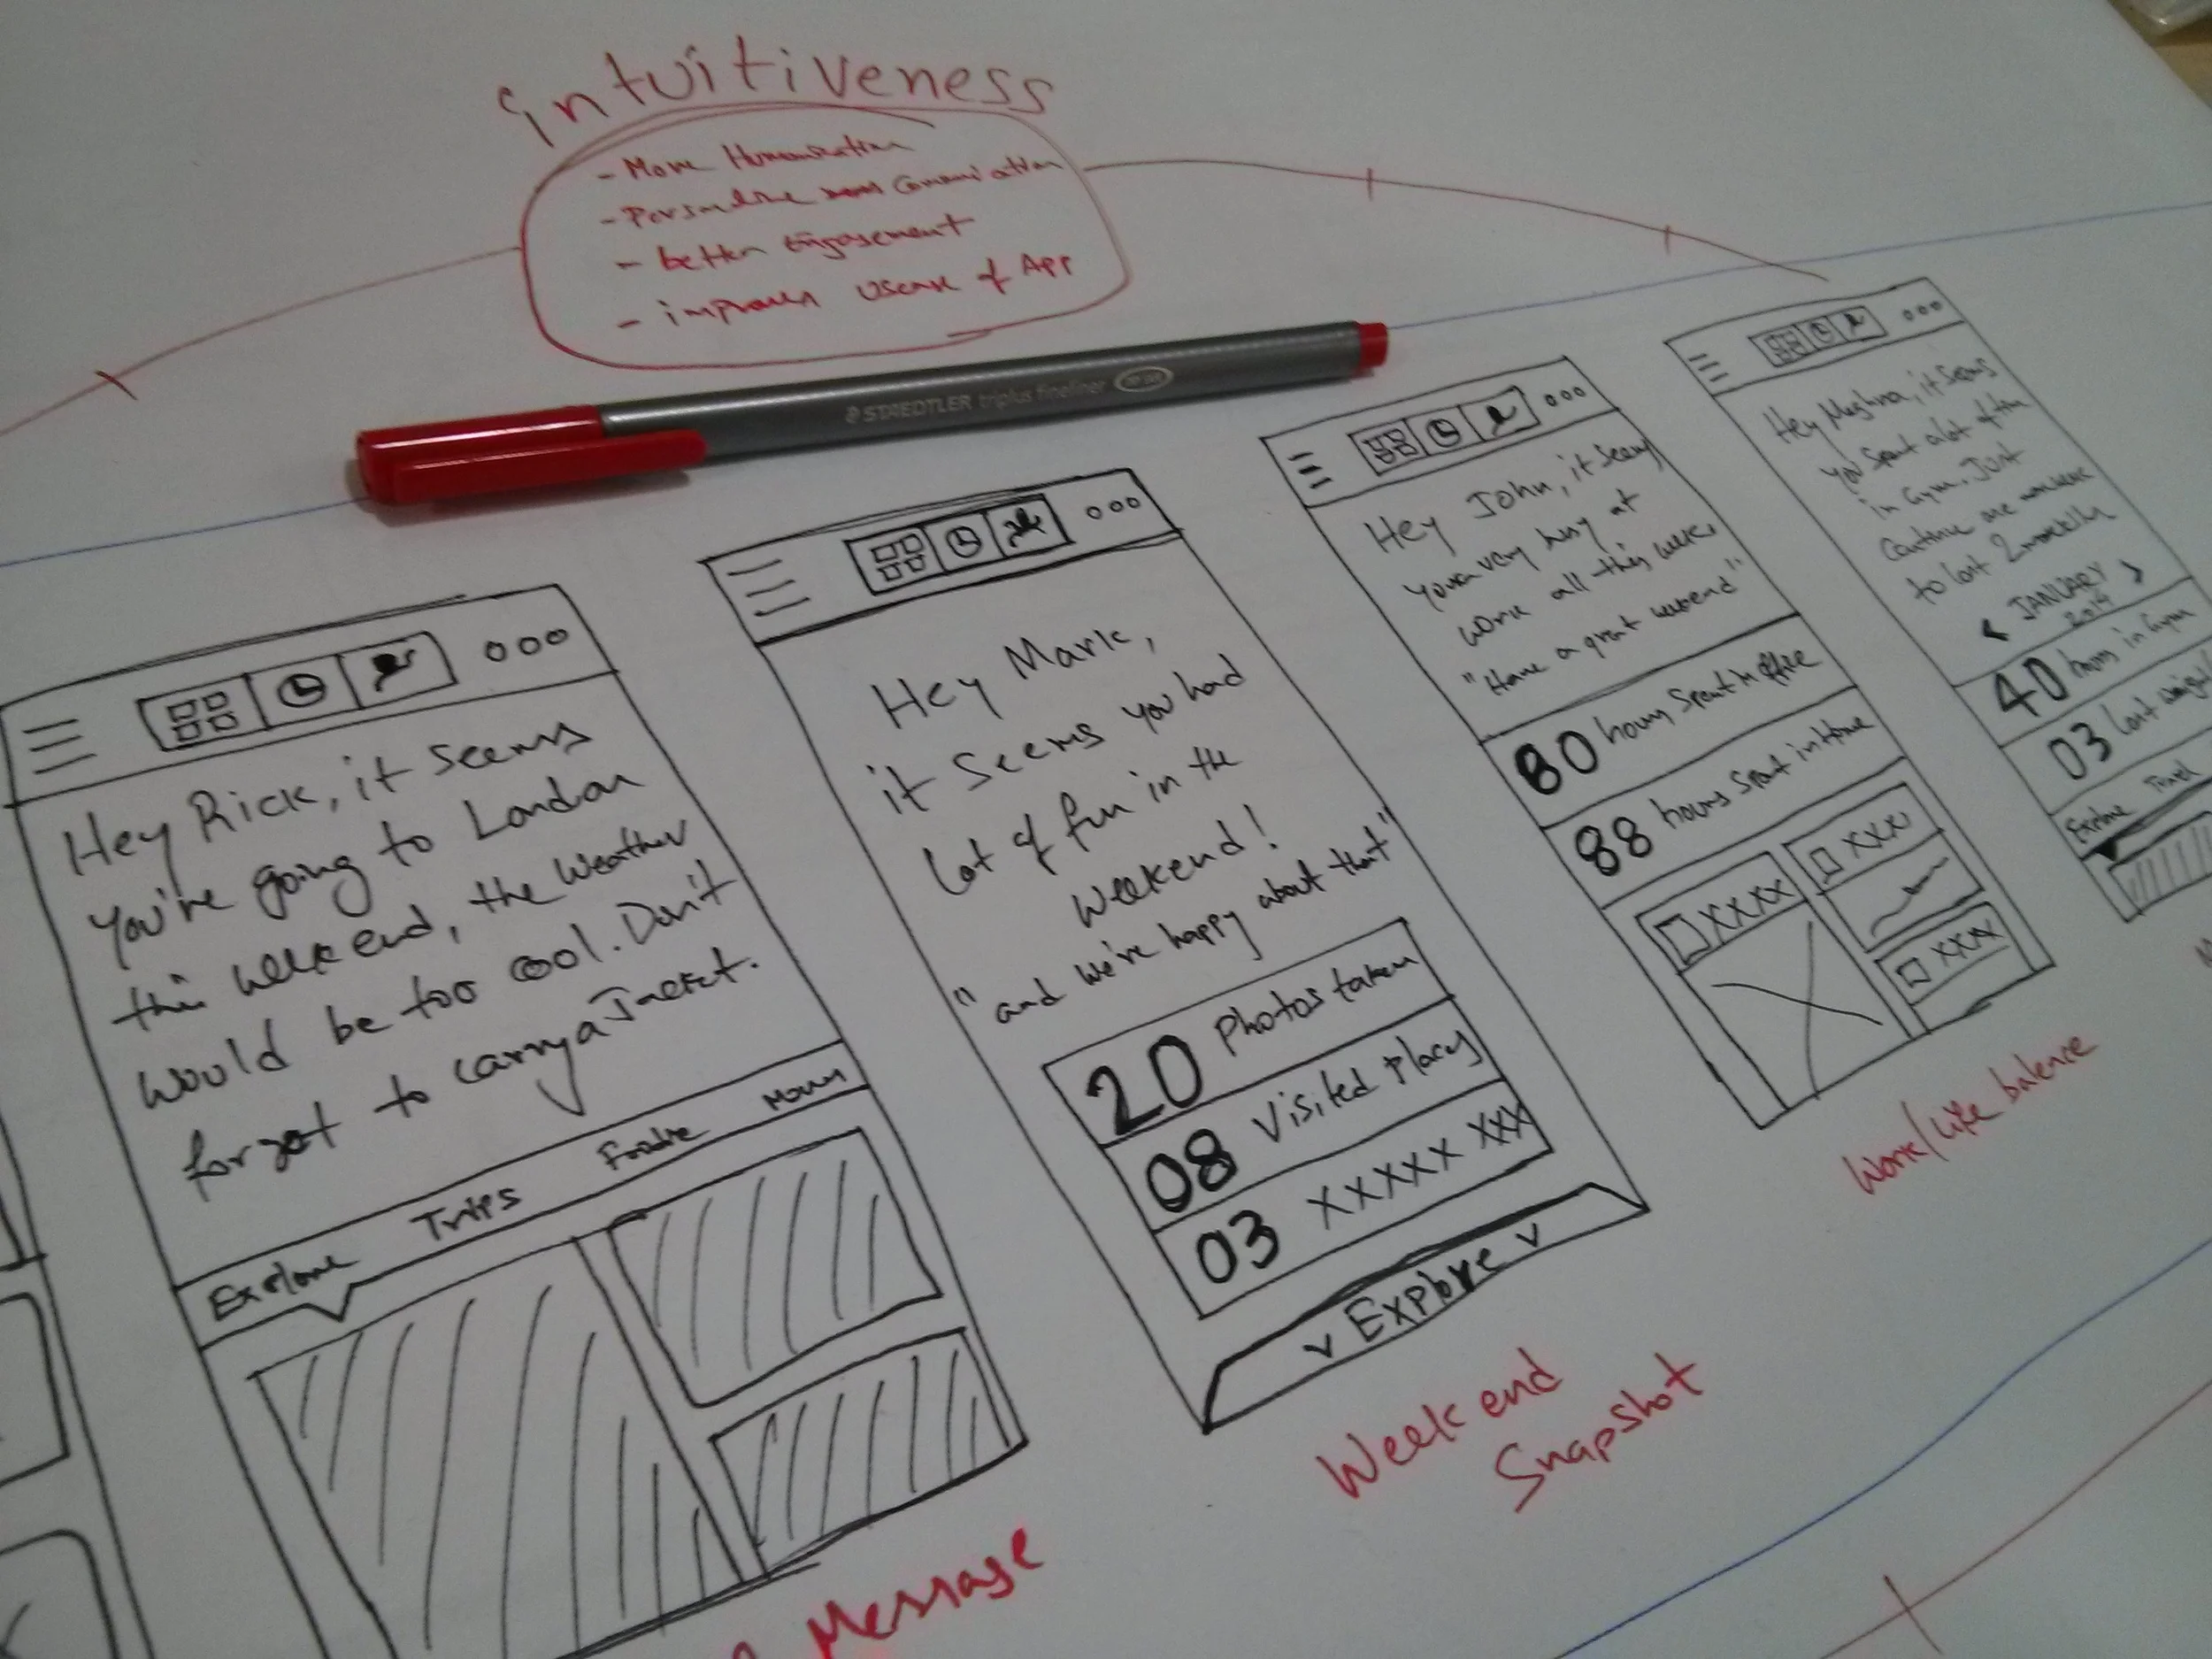 intuitiveness
- More Humanisation
- Personalise Communication
- better Engagement
- improves Usage of App
STAEDTLER triplus fineliner
Hey Rick, it seems
you're going to London
this weekend, the weather
would be too cool. Don't
forget to carry a Jacket.
Explore Trips Foodie
Message
Hey Mark,
it seems you had
lot of fun in the
weekend!
"and we're happy about that"
20 Photos taken
08 Visited places
03 XXXXX XXX
v Explore v
Weekend
Snapshot
Hey John, it seems
you're very busy at
work all this week,
"Have a great weekend"
80 hours spent in office
88 hours spent in Home
XXXX
XXX
XXX
Work/Life balence
Hey Meghna, it seems
you spent a lot of time
in Gym. Just
Continue one more week
to lost 2 more
< JANUARY >
2014
40 hours in Gym
03 lost weight
Explore Travel